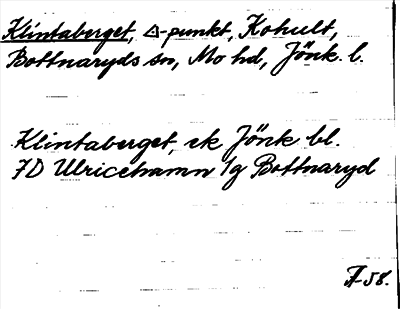 Klintaberget, △-punkt, Kohult,
Bottnaryds sn, Mo hd, Jönk. l.
Klintaberget, ek Jönk bl.
7D Ulricehamn 1g Bottnaryd
58.